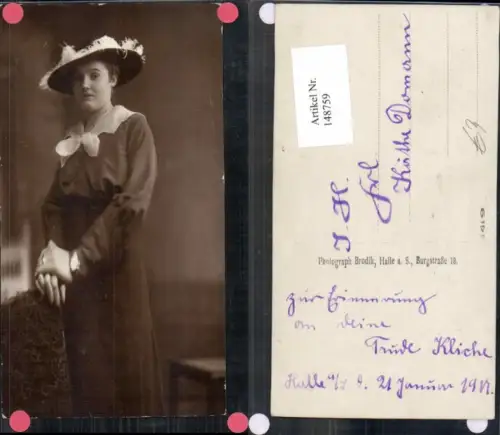 Artikel Nr.
148759
I. H.
Frl
Käthe Domann
Photograph Brodik, Halle a. S., Burgstraße 10.
zur Erinnerung
an deine
Trude Kliche
Halle a/S d. 21 Januar 1917.